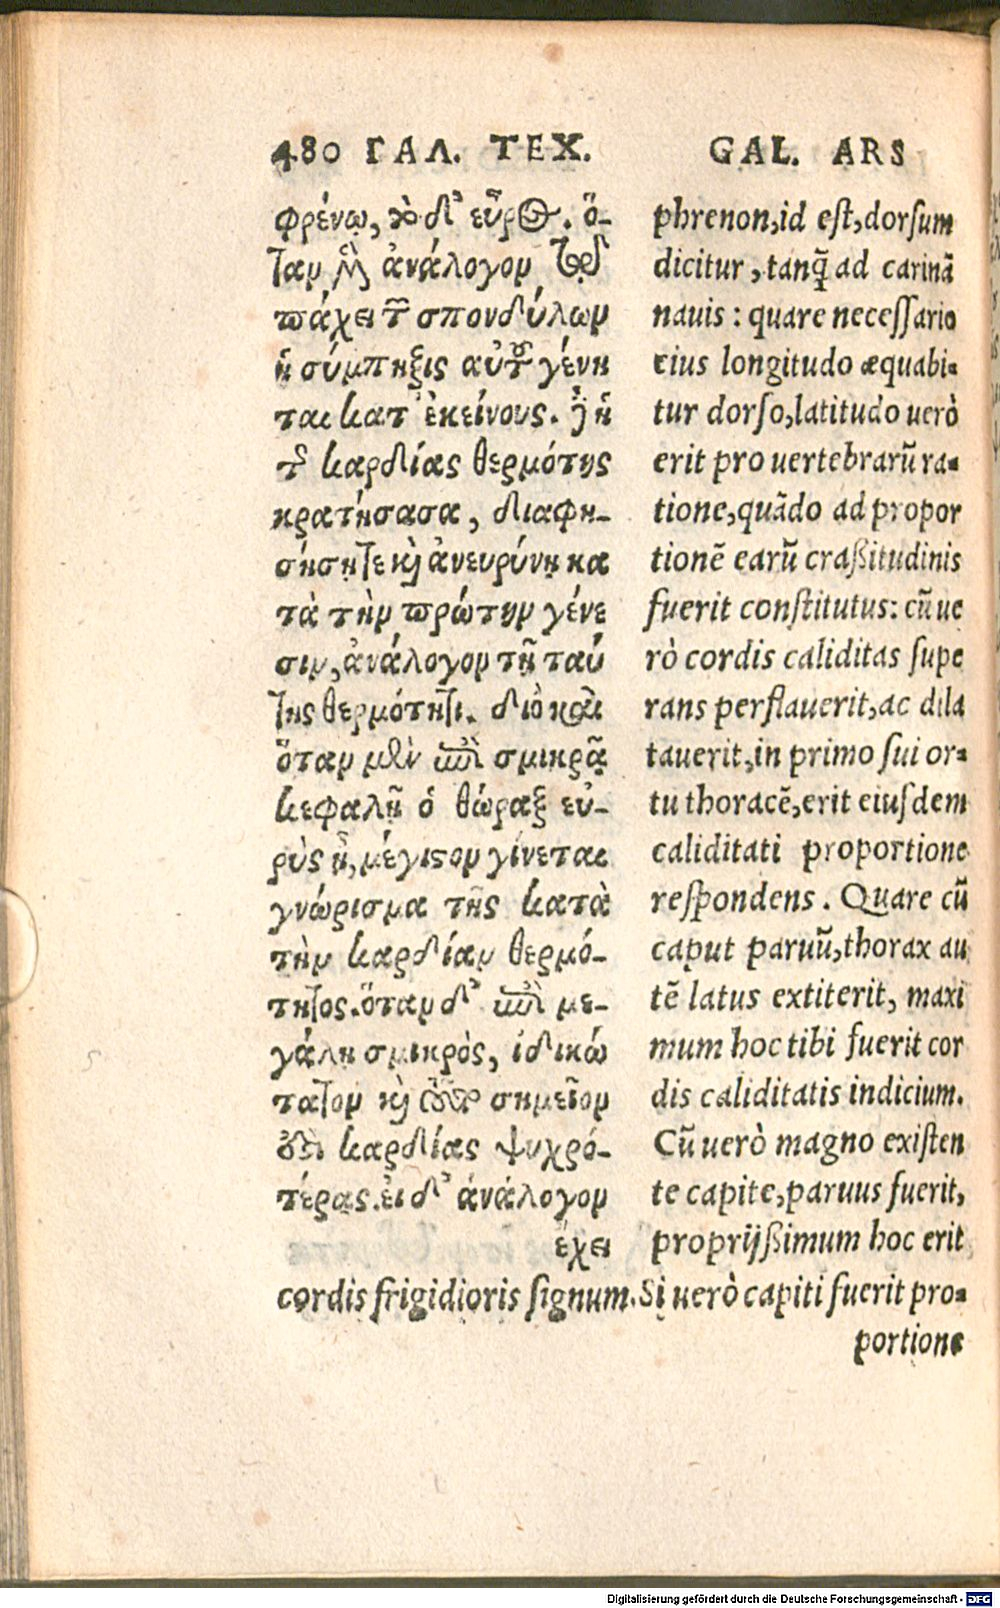 480 ΓΑΛ. ΤΕΧ. GAL. ARS
φρένῳ, τὸ δ' εὖρος. ὅ-
ταν μὲν ἀνάλογον τῷ
πάχει τῶν σπονδύλων
ἡ σύμπηξις αὐτοῦ γένη
ται κατ' ἐκείνους. ἢν ἡ
τῆς καρδίας θερμότης
κρατήσασα, διαφη-
σήσῃ τε καὶ ἀνευρύνῃ κα
τὰ τὴν πρώτην γένε
σιν, ἀνάλογον τῇ ταύ
της θερμότητι. διὸ καὶ
ὅταν μὲν ἐπὶ σμικρᾷ
κεφαλῇ ὁ θώραξ εὐ-
ρὺς ᾖ, μέγιστον γίνεται
γνώρισμα τῆς κατὰ
τὴν καρδίαν θερμό-
τητος. ὅταν δ' ἐπὶ με-
γάλῃ σμικρὸς, ἰδικώ
τατον καὶ οὗτος σημεῖον
ἐστὶ καρδίας ψυχρό-
τέρας. εἰ δ' ἀνάλογον
ἔχει
phrenon, id est, dorsum
dicitur, tanq̃ ad carinā
nauis : quare necessario
eius longitudo æquabi-
tur dorso, latitudo uerò
erit pro uertebrarũ ra-
tione, quādo ad propor
tionē earũ craßitudinis
fuerit constitutus: cũ ue
rò cordis caliditas supe
rans perflauerit, ac dila
tauerit, in primo sui or-
tu thoracē, erit eiusdem
caliditati proportione
respondens. Quare cũ
caput paruũ, thorax au
tē latus extiterit, maxi
mum hoc tibi fuerit cor
dis caliditatis indicium.
Cũ uerò magno existen
te capite, paruus fuerit,
proprijßimum hoc erit
cordis frigidioris signum. Si uerò capiti fuerit pro-
portione
Digitalisierung gefördert durch die Deutsche Forschungsgemeinschaft - DFG